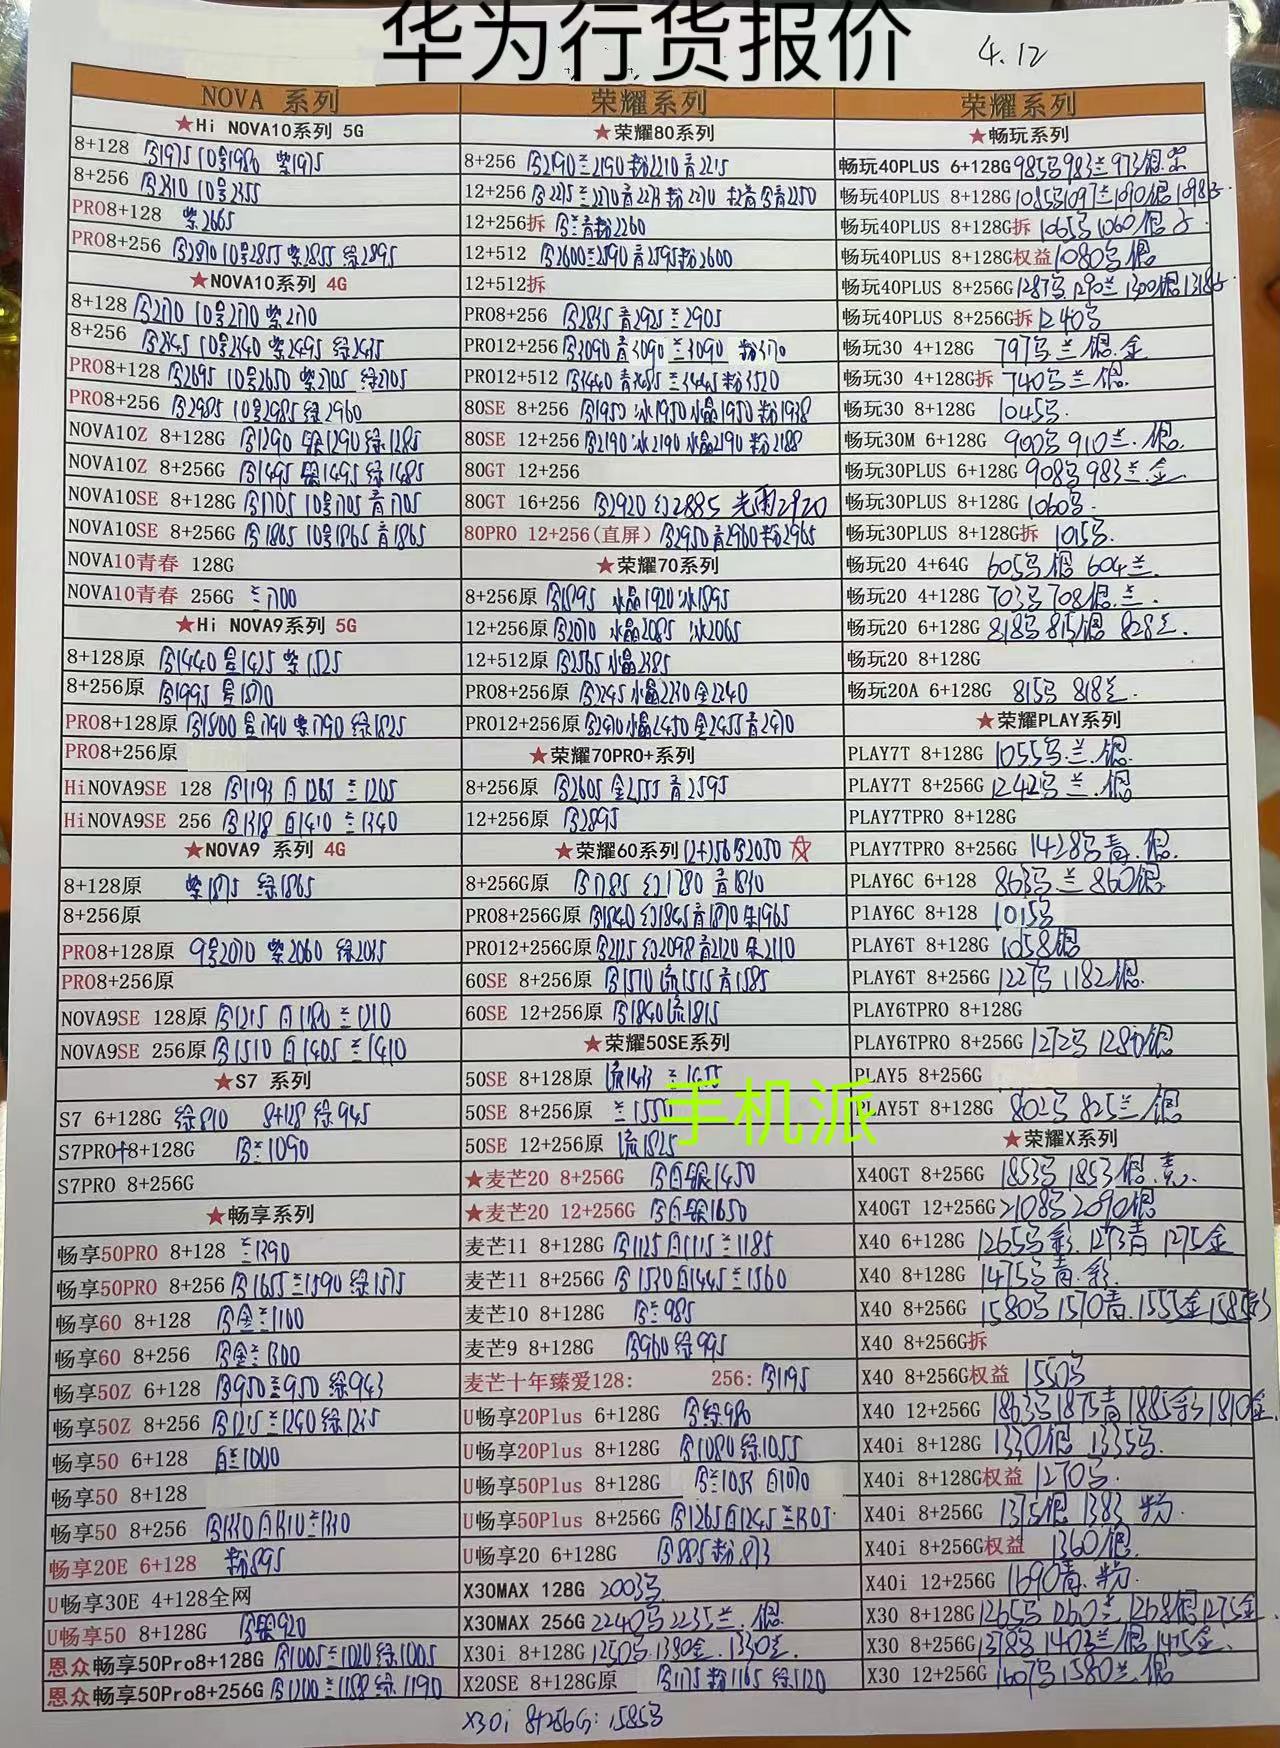 华为行货报价
4.12
NOVA 系列
★Hi NOVA10系列 5G
8+128 1975 10号1980 紫1975
8+256 2310 10号2355
PRO8+128 紫2665
PRO8+256 2870 10号2855 紫2855 绿2895
★NOVA10系列 4G
8+128 2170 10号2170 紫2170
8+256 2345 10号2340 紫2495 绿2435
PRO8+128 2695 10号2650 紫2705 绿2705
PRO8+256 2985 10号2985 绿2960
NOVA10Z 8+128G 1290 银1290 绿1285
NOVA10Z 8+256G 1495 银1495 绿1485
NOVA10SE 8+128G 1705 10号1705 青1705
NOVA10SE 8+256G 1865 10号1865 青1865
NOVA10青春 128G
NOVA10青春 256G 兰1700
★Hi NOVA9系列 5G
8+128原 1440 1425 紫1525
8+256原 1995 1870
PRO8+128原 1800 1790 紫1790 绿1825
PRO8+256原
HiNOVA9SE 128 1193 白1265 兰1205
HiNOVA9SE 256 1318 白1410 兰1340
★NOVA9 系列 4G
8+128原 紫1875 绿1865
8+256原
PRO8+128原 9号2070 紫2060 绿2035
PRO8+256原
NOVA9SE 128原 1215 白1180 兰1210
NOVA9SE 256原 1510 白1405 兰1410
★S7 系列
S7 6+128G 绿810 8+128 绿945
S7PRO+8+128G 兰1090
S7PRO 8+256G
★畅享系列
畅享50PRO 8+128 兰1390
畅享50PRO 8+256 1655 兰1590 绿1575
畅享60 8+128 金兰1100
畅享60 8+256 金兰1300
畅享50Z 6+128 950 兰950 绿943
畅享50Z 8+256 1215 兰1240 绿1215
畅享50 6+128 白兰1000
畅享50 8+128
畅享50 8+256 1330 白1310 兰1330
畅享20E 6+128 粉895
U畅享30E 4+128全网
U畅享50 8+128G 银920
恩众畅享50Pro8+128G 1005 兰1020 绿1005
恩众畅享50Pro8+256G 1200 兰1188 绿1190
荣耀系列
★荣耀80系列
8+256 2190 兰2190 粉2210 青2215
12+256 2275 兰2270 青2273 粉2270 2250
12+256拆 兰青粉2260
12+512 2600 兰2590 青2595 粉2600
12+512拆
PRO8+256 2835 青2925 兰2905
PRO12+256 3090 青3090 兰3090 粉3170
PRO12+512 3440 青3485 兰3445 粉3520
80SE 8+256 1950 冰1950 水晶1950 粉1938
80SE 12+256 2190 冰2190 水晶2190 粉2188
80GT 12+256
80GT 16+256 2920 幻2885 光雨2920
80PRO 12+256(直屏) 2950 青2960 粉2965
★荣耀70系列
8+256原 1895 水晶1920 冰1895
12+256原 2070 水晶2085 冰2065
12+512原 2365 水晶2385
PRO8+256原 2245 水晶2230 金2240
PRO12+256原 2470 水晶2450 金2455 青2470
★荣耀70PRO+系列
8+256原 2605 金2555 青2595
12+256原 2895
★荣耀60系列 12+256 2050 ☆
8+256G原 1785 幻1780 青1810
PRO8+256G原 1840 幻1845 青1870 朱1965
PRO12+256G原 2125 幻2098 青2120 朱2110
60SE 8+256原 1570 流1515 青1585
60SE 12+256原 1840 流1815
★荣耀50SE系列
50SE 8+128原 流1433 兰1455
50SE 8+256原 兰1550
50SE 12+256原 流1825
★麦芒20 8+256G 白银1450
★麦芒20 12+256G 白银1650
麦芒11 8+128G 1125 白1115 兰1185
麦芒11 8+256G 1530 白1445 兰1560
麦芒10 8+128G 兰985
麦芒9 8+128G 960 绿995
麦芒十年臻爱128: 256: 1195
U畅享20Plus 6+128G 绿980
U畅享20Plus 8+128G 1080 绿1055
U畅享50Plus 8+128G 兰1055 白1070
U畅享50Plus 8+256G 1265 白1245 兰1305
U畅享20 6+128G 885 粉873
X30MAX 128G 2003
X30MAX 256G 2240 2235兰.银
X30i 8+128G 1250 1380金.1330兰.
X20SE 8+128G原 1175 粉1165 绿1120
X30i 8+256G: 1585
荣耀系列
★畅玩系列
畅玩40PLUS 6+128G 985 983兰 973银
畅玩40PLUS 8+128G 1085 1097兰 1090银 1098
畅玩40PLUS 8+128G拆 1065 1060银
畅玩40PLUS 8+128G权益 1080 银
畅玩40PLUS 8+256G 1287 1290兰 1300银 1318
畅玩40PLUS 8+256G拆 1240
畅玩30 4+128G 797 兰.银.金
畅玩30 4+128G拆 740 兰.银.
畅玩30 8+128G 1045
畅玩30M 6+128G 900 910兰.银
畅玩30PLUS 6+128G 908 983兰.金
畅玩30PLUS 8+128G 1060
畅玩30PLUS 8+128G拆 1015
畅玩20 4+64G 605 银 604兰.
畅玩20 4+128G 703 708银.兰.
畅玩20 6+128G 818 815银 828兰.
畅玩20 8+128G
畅玩20A 6+128G 815 818兰.
★荣耀PLAY系列
PLAY7T 8+128G 1055 兰.银.
PLAY7T 8+256G 1242 兰.银
PLAY7TPRO 8+128G
PLAY7TPRO 8+256G 1428 青.银.
PLAY6C 6+128 863 兰 860银
PlAY6C 8+128 1015
PLAY6T 8+128G 1058银
PLAY6T 8+256G 1227 1182银.
PLAY6TPRO 8+128G
PLAY6TPRO 8+256G 1272 1280银
PLAY5 8+256G
PLAY5T 8+128G 802 825兰.银
★荣耀X系列
X40GT 8+256G 1853 1853银.
X40GT 12+256G 2108 2090银
X40 6+128G 1265 彩.1273青 1275金
X40 8+128G 1475 青.彩.
X40 8+256G 1580 1570青.1555金1585彩
X40 8+256G拆
X40 8+256G权益 1550
X40 12+256G 1863 1875青 1885彩1810金.
X40i 8+128G 1330银 1335
X40i 8+128G权益 1270
X40i 8+256G 1375银 1383 粉.
X40i 8+256G权益 1360银.
X40i 12+256G 1690青.粉.
X30 8+128G 1265 1260兰 1268银1275金
X30 8+256G 1378 1403兰/银1415金.
X30 12+256G 1607 1580兰.银
手机派